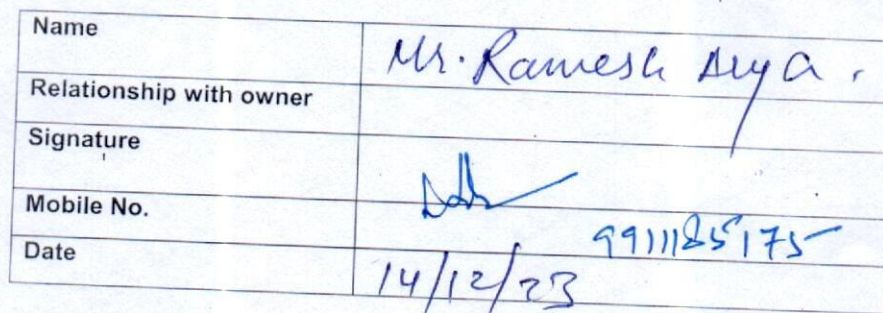 Name Mr. Ramesh Arya.
Relationship with owner
Signature
Mobile No. 9911185175
Date 14/12/23